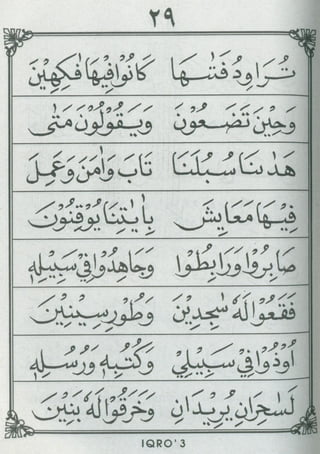 ٢٩
تُرَاوِدُ فَتٰىهَا كَانُوْا فِيْهَا فٰكِهِيْنَ
وَحِيْنَ تَضَعُوْنَ وَيَقُوْلُوْنَ مَتٰى
هَدٰىنَا سُبُلَنَا تَابَ وَاٰمَنَ وَعَمِلَ
فِيْهَا مَعَايِشَ بِاٰيٰتِنَا يُوْقِنُوْنَ
صَابِرُوْا وَرَابِطُوْا وَجَاهِدُوْا فِيْ سَبِيْلِهٖ
فَقَعُوْا لَهٗ سٰجِدِيْنَ وَطُوْرِ سِيْنِيْنَ
اُوْذُوْا فِيْ سَبِيْلِيْ وَكُتُبِهٖ وَرُسُلِهٖ
لَسٰحِرَانِ يُرِيْدَانِ وَخَرَقُوْا لَهٗ بَنِيْنَ
IQRO' 3